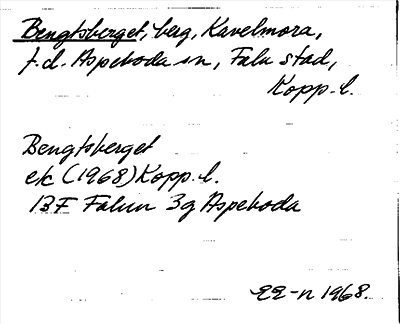 Bengtsberget, berg, Kavelmora,
f.d. Aspeboda sn, Falu stad,
Kopp. l.
Bengtsberget
ek (1968) Kopp. l.
13F Falun 3g Aspeboda
EE-n 1968.